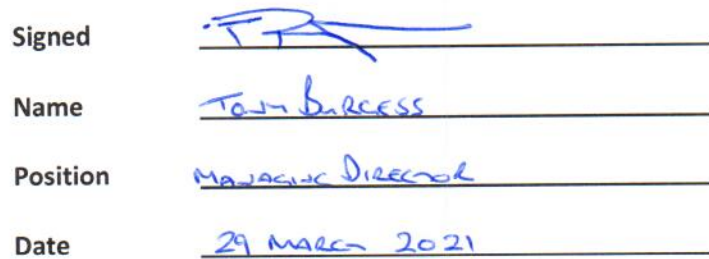 Signed
Name Tony Burgess
Position Managing Director
Date 29 March 2021